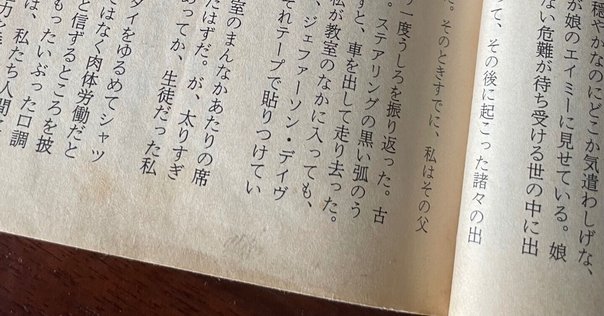 穏やかなのにどこか気遣わしげな、
が娘のエイミーに見せている。娘
ない危難が待ち受ける世の中に出
って、その後に起こった諸々の出
た。そのときすでに、私はその父
一度うしろを振り返った。古
。ステアリングの黒い弧のう
すと、車を出して走り去った。
私が教室のなかに入っても、
、ジェファーソン・デイヴ
それテープで貼りつけてい
室のまんなかあたりの席
たはずだ。が、太りすぎ
あってか、生徒だった私
タイをゆるめてシャツ
ではなく肉体労働だと
と信ずるところを披
もったいぶった口調
は、私たち人間と